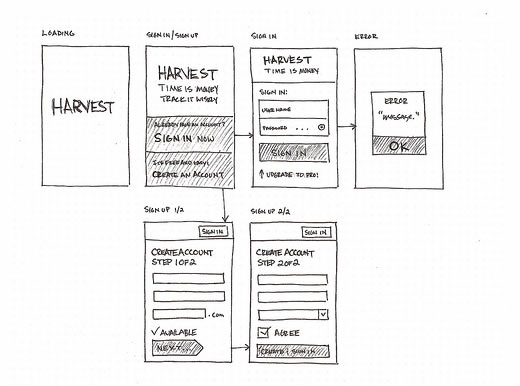 LOADING
HARVEST
SIGN IN/SIGN UP
HARVEST
TIME IS MONEY
TRACK IT WISELY
ALREADY HAVE AN ACCOUNT?
SIGN IN NOW
IT'S FREE AND EASY!
CREATE AN ACCOUNT
SIGN IN
HARVEST
TIME IS MONEY
SIGN IN:
USERNAME
PASSWORD ...
SIGN IN
↑ UPGRADE TO PRO!
ERROR
ERROR
"MESSAGE."
OK
SIGN UP 1/2
SIGN IN
CREATE ACCOUNT
STEP 1 OF 2
.com
✓ AVAILABLE
NEXT...
SIGN UP 2/2
SIGN IN
CREATE ACCOUNT
STEP 2 OF 2
AGREE
CREATE & SIGN IN